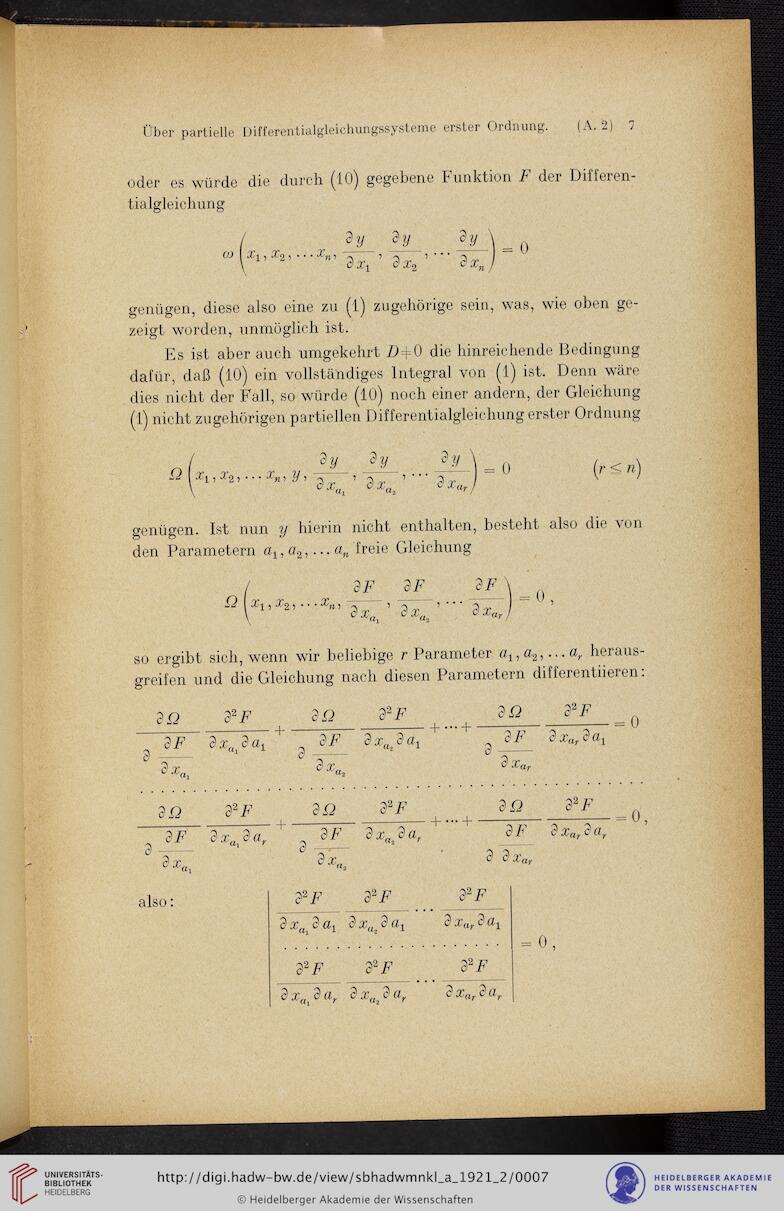 Über partielle Differentialgleichungssysteme erster Ordnung. (A. 2) 7
oder es würde die durch (10) gegebene Funktion F der Differen-
tialgleichung
ω (x₁, x₂, ... xₙ, ∂y/∂x₁, ∂y/∂x₂, ... ∂y/∂xₙ) = 0
genügen, diese also eine zu (1) zugehörige sein, was, wie oben ge-
zeigt worden, unmöglich ist.
Es ist aber auch umgekehrt D≠0 die hinreichende Bedingung
dafür, daß (10) ein vollständiges Integral von (1) ist. Denn wäre
dies nicht der Fall, so würde (10) noch einer andern, der Gleichung
(1) nicht zugehörigen partiellen Differentialgleichung erster Ordnung
Ω (x₁, x₂, ... xₙ, y, ∂y/∂x_{α₁}, ∂y/∂x_{α₂}, ... ∂y/∂x_{αᵣ}) = 0 (r ≤ n)
genügen. Ist nun y hierin nicht enthalten, besteht also die von
den Parametern a₁, a₂, ... aₙ freie Gleichung
Ω (x₁, x₂, ... xₙ, ∂F/∂x_{α₁}, ∂F/∂x_{α₂}, ... ∂F/∂x_{αᵣ}) = 0,
so ergibt sich, wenn wir beliebige r Parameter a₁, a₂, ... aᵣ heraus-
greifen und die Gleichung nach diesen Parametern differentiieren:
∂Ω/(∂ ∂F/∂x_{α₁}) ∂²F/(∂x_{α₁}∂a₁) + ∂Ω/(∂ ∂F/∂x_{α₂}) ∂²F/(∂x_{α₂}∂a₁) + ... + ∂Ω/(∂ ∂F/∂x_{αᵣ}) ∂²F/(∂x_{αᵣ}∂a₁) = 0
. . . . . . . . . . . . . . . . . . . . . . . . . . . . . . . . . . . . . . . .
∂Ω/(∂ ∂F/∂x_{α₁}) ∂²F/(∂x_{α₁}∂aᵣ) + ∂Ω/(∂ ∂F/∂x_{α₂}) ∂²F/(∂x_{α₂}∂aᵣ) + ... + ∂Ω/(∂ ∂F/∂x_{αᵣ}) ∂²F/(∂x_{αᵣ}∂aᵣ) = 0,
also:
| ∂²F/(∂x_{α₁}∂a₁) ∂²F/(∂x_{α₂}∂a₁) ... ∂²F/(∂x_{αᵣ}∂a₁) |
. . . . . . . . . . . . . . . . . . . . = 0,
| ∂²F/(∂x_{α₁}∂aᵣ) ∂²F/(∂x_{α₂}∂aᵣ) ... ∂²F/(∂x_{αᵣ}∂aᵣ) |
UNIVERSITÄTS-
BIBLIOTHEK
HEIDELBERG
http://digi.hadw-bw.de/view/sbhadwmnkl_a_1921_2/0007
© Heidelberger Akademie der Wissenschaften
HEIDELBERGER AKADEMIE
DER WISSENSCHAFTEN